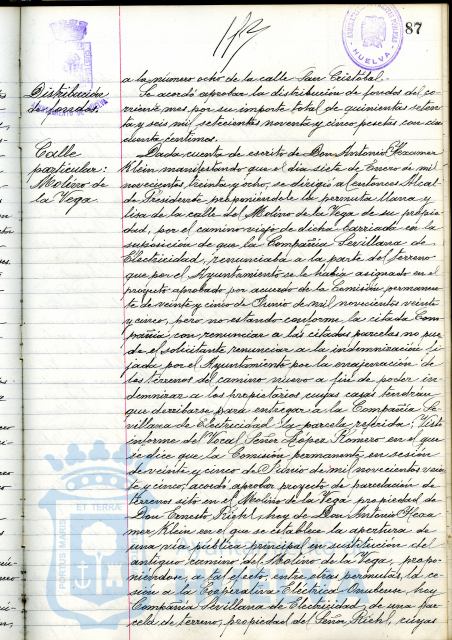 87
a la número ocho de la calle San Cristobal.
Distribución
de fondos.
Se acordó aprobar la distribución de fondos del co-
rriente mes por su importe total de quinientas seten-
ta y seis mil setecientas noventa y cinco pesetas con cin-
cuenta céntimos.
Calle
particular:
Molino de
la Vega
Dada cuenta de escrito de Don Antonio Hexamer
Klein manifestando que el dia siete de Enero de mil
novecientos treinta y ocho, se dirigió al entonces Alcal-
de Presidente proponiendole la permuta llana y
lisa de la calle del Molino de la Vega de su propie-
dad, por el camino viejo de dicha barriada en la
suposición de que la Compañia Sevillana de
Electricidad, renunciaba a la parte del terreno
que por el Ayuntamiento se le habia asignado en el
proyecto aprobado por acuerdo de la Comisión permanen-
te de veinte y cinco de Junio de mil novecientos veinte
y cinco, pero no estando conforme la citada Com-
pañia con renunciar a las citadas parcelas no pue-
de el solicitante renunciar a la indemnización fi-
jada por el Ayuntamiento por la
de los terrenos del camino nuevo a fin de poder in-
demnizar a los propietarios cuyas casas tendran
que derribarse para entregar a la Compañia Se-
villana de Electricidad la parcela referida; Visto
informe del Vocal Señor López Romero en el que
se dice que la Comisión permanente en sesión
de veinte y cinco de Junio de mil novecientos vein-
te y cinco, acordó aprobar proyecto de parcelación de
terrenos sito en el Molino de la Vega propiedad de
Don Ernesto Riehl, hoy de Don Antonio Hexa-
mer Klein en el que se establece la apertura de
una via pública principal en sustitución del
antiguo camino del Molino de la Vega, propo-
niendose, a tal efecto, entre otras permutas, la ce-
sión a la Cooperativa Eléctrica Onubense hoy
Compañia Sevillana de Electricidad, de una par-
cela de terreno, propiedad del Señor Riehl, cuyas
HUELVA
PORTUS MARIS ET TERRAE